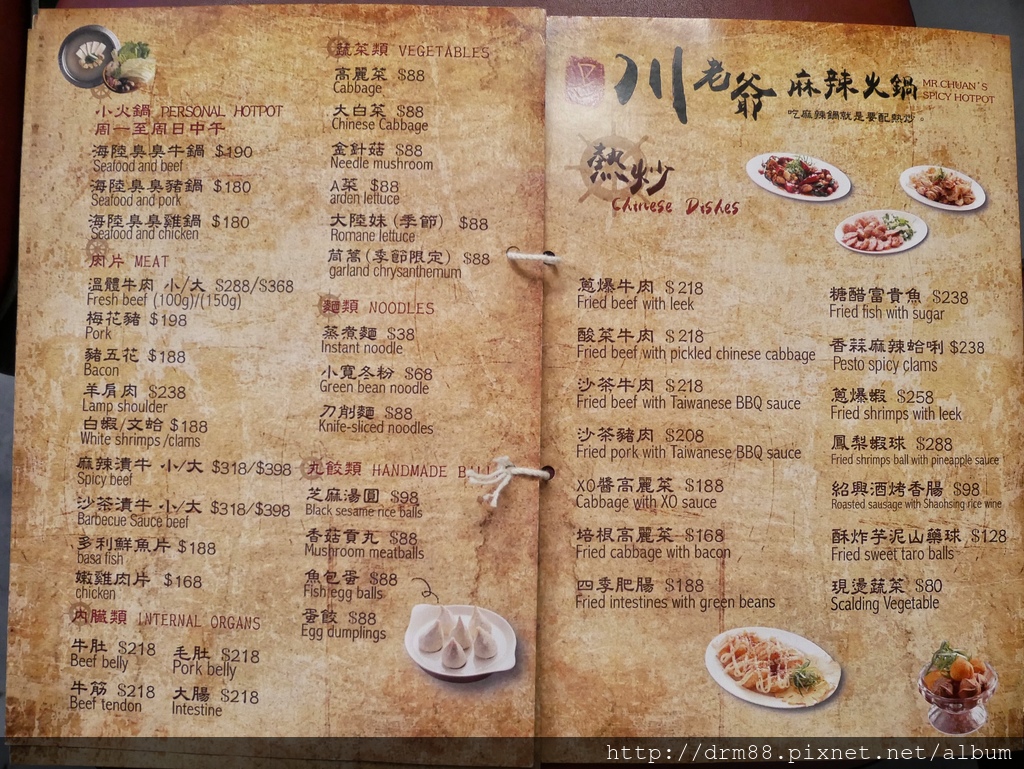 小火鍋 PERSONAL HOTPOT
周一至周日中午
海陸臭臭牛鍋 $190
Seafood and beef
海陸臭臭豬鍋 $180
Seafood and pork
海陸臭臭雞鍋 $180
Seafood and chicken
肉片 MEAT
溫體牛肉 小/大 $288/$368
Fresh beef (100g)/(150g)
梅花豬 $198
Pork
豬五花 $188
Bacon
羊肩肉 $238
Lamp shoulder
白蝦/文蛤 $188
White shrimps /clams
麻辣漬牛 小/大 $318/$398
Spicy beef
沙茶漬牛 小/大 $318/$398
Barbecue Sauce beef
多利鮮魚片 $188
basa fish
嫩雞肉片 $168
chicken
內臟類 INTERNAL ORGANS
牛肚 $218 毛肚 $218
Beef belly Pork belly
牛筋 $218 大腸 $218
Beef tendon Intestine
蔬菜類 VEGETABLES
高麗菜 $88
Cabbage
大白菜 $88
Chinese Cabbage
金針菇 $88
Needle mushroom
A菜 $88
arden lettuce
大陸妹(季節) $88
Romane lettuce
茼萵(季節限定) $88
garland chrysanthemum
麵類 NOODLES
蒸煮麵 $38
Instant noodle
小寬冬粉 $68
Green bean noodle
刀削麵 $88
Knife-sliced noodles
丸餃類 HANDMADE
芝麻湯圓 $98
Black sesame rice balls
香菇貢丸 $88
Mushroom meatballs
魚包蛋 $88
Fish egg balls
蛋餃 $88
Egg dumplings
川老爺 麻辣火鍋
MR CHUAN'S
SPICY HOTPOT
吃麻辣鍋就是要配熱炒。
熱炒
Chinese Dishes
蔥爆牛肉 $218
Fried beef with leek
酸菜牛肉 $218
Fried beef with pickled chinese cabbage
沙茶牛肉 $218
Fried beef with Taiwanese BBQ sauce
沙茶豬肉 $208
Fried pork with Taiwanese BBQ sauce
XO醬高麗菜 $188
Cabbage with XO sauce
培根高麗菜 $168
Fried cabbage with bacon
四季肥腸 $188
Fried intestines with green beans
糖醋富貴魚 $238
Fried fish with sugar
香蒜麻辣蛤唎 $238
Pesto spicy clams
蔥爆蝦 $258
Fried shrimps with leek
鳳梨蝦球 $288
Fried shrimps ball with pineapple sauce
紹興酒烤香腸 $98
Roasted sausage with Shaohsing rice wine
酥炸芋泥山藥球 $128
Fried sweet taro balls
現燙蔬菜 $80
Scalding Vegetable
http://drm88.pixnet.net/album